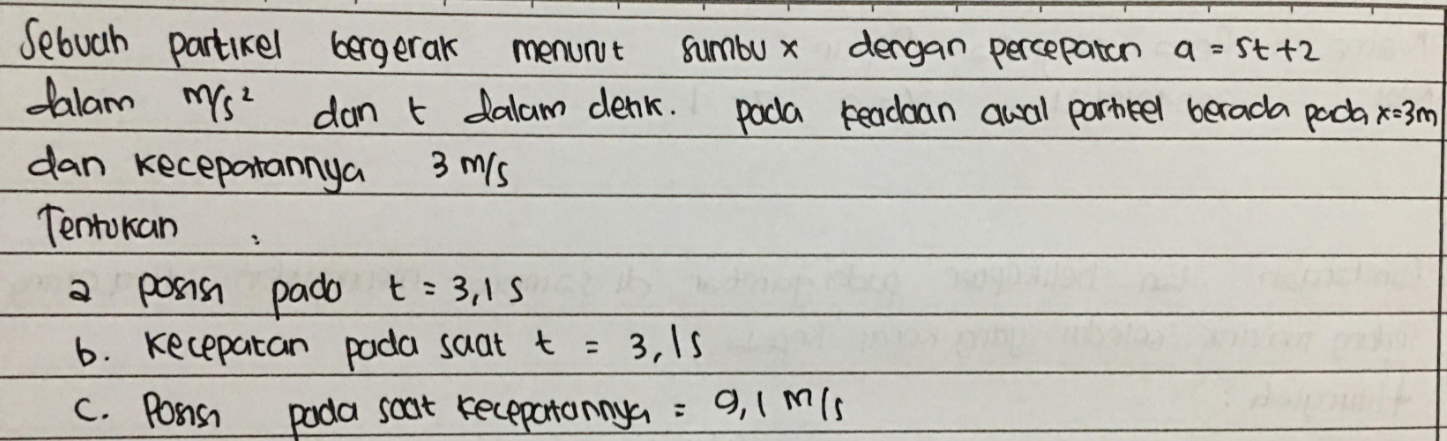 Sebuah partikel bergerak menurut sumbu x dengan percepatan a = 5t + 2
dalam m/s² dan t dalam detik. pada keadaan awal partikel berada pada x=3m
dan kecepatannya 3 m/s
Tentukan :
a posisi pada t = 3,1 s
b. kecepatan pada saat t = 3,1s
c. Posisi pada saat kecepatannya = 9,1 m/s